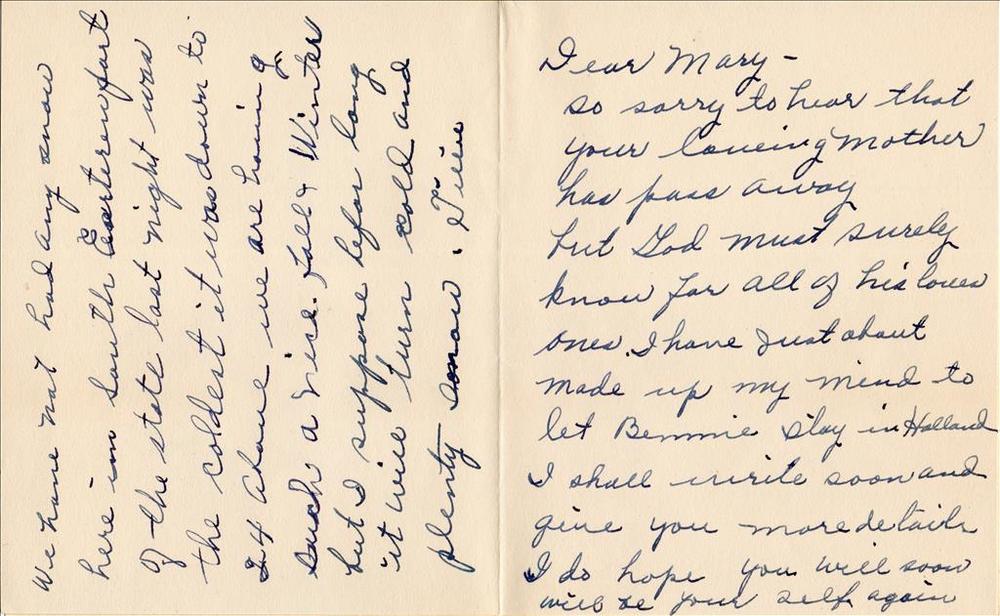 Dear Mary -
so sorry to hear that
your loveing Mother
has pass away
but God must surely
know for all of his loves
ones. I have just about
made up my mind to
let Bennie stay in Holland
I shall write soon and
give you more details
I do hope you will soon
will be your self again
We have not had any snow
here in south Easteren part
of the state last night was
the coldest it was down to
24 above we are having
such a nice fall & Winter
but I suppose befor long
it will turn cold and
plenty snow.